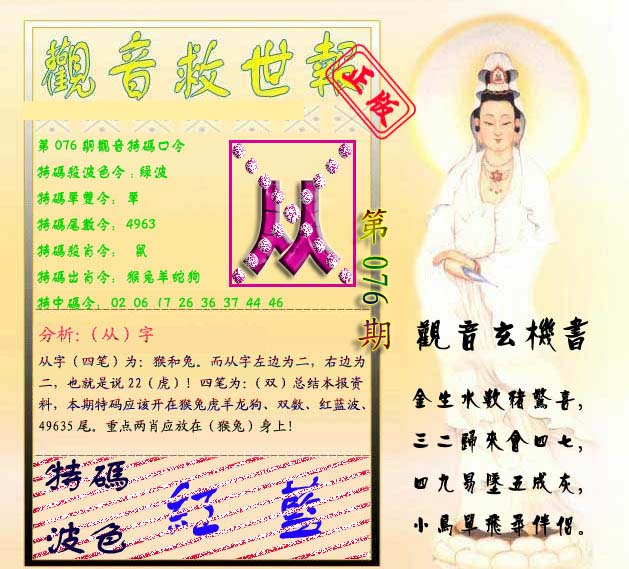 觀音救世報
正版
第076期觀音特碼口令
特碼殺波色令：綠波
特碼單雙令： 單
特碼尾數令： 4963
特碼殺肖令： 鼠
特碼出肖令： 猴兔羊蛇狗
特中碼令： 02 06 17 26 36 37 44 46
从
第076期
分析:（从）字
从字（四笔）为：猴和兔。而从字左边为二，右边为
二，也就是说22（虎）！四笔为：（双）总结本报资
料，本期特码应该开在猴兔虎羊龙狗、双数、红蓝波、
49635尾。重点两肖应放在（猴兔）身上！
特碼
波色
紅 藍
觀音玄機書
金生水數豬驚喜，
三二歸來會四七，
四九易墜五成灰，
小鳥單飛尋伴侶。